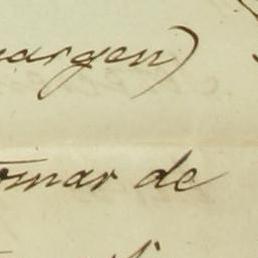 margen)
tomar de